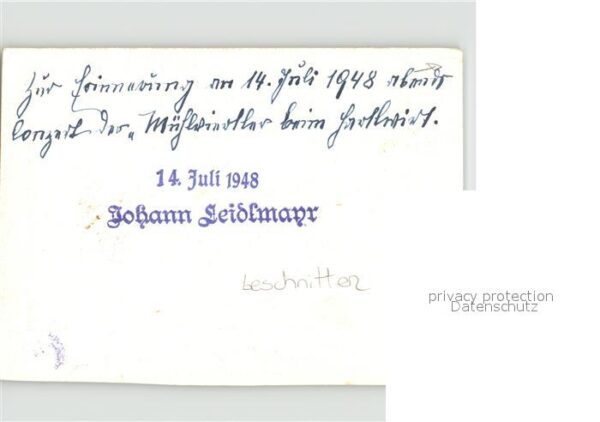 Zur Erinnerung an 14. Juli 1948 abends
Conzert der „Mühlviertler beim Hartlwirt.
14. Juli 1948
Johann Leidlmayr
beschnitten
privacy protection
Datenschutz